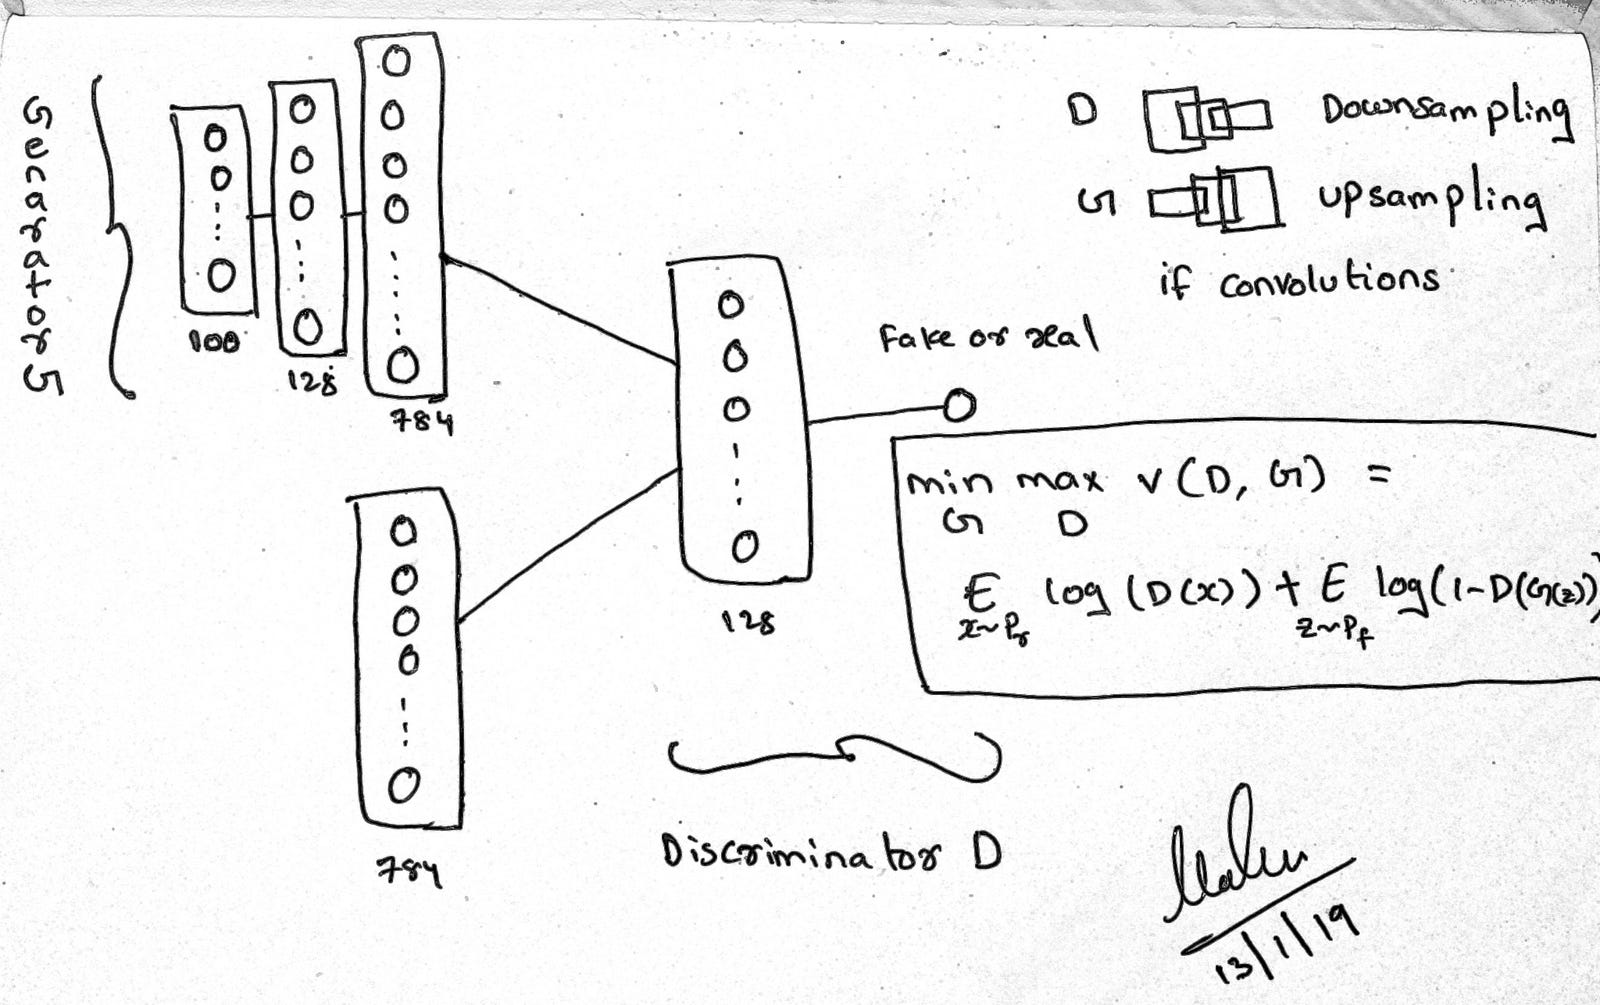 Generator G
100
128
784
D Downsampling
G upsampling
if convolutions
Fake or real
min max V(D, G) =
G D
E log (D(x)) + E log(1-D(G(z))
x~Pr z~Pf
128
784
Discriminator D
13/1/19